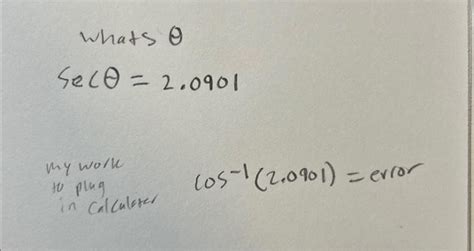 whats θ
Secθ = 2.0901
my work
to plug
in calculater
cos⁻¹(2.0901) = error